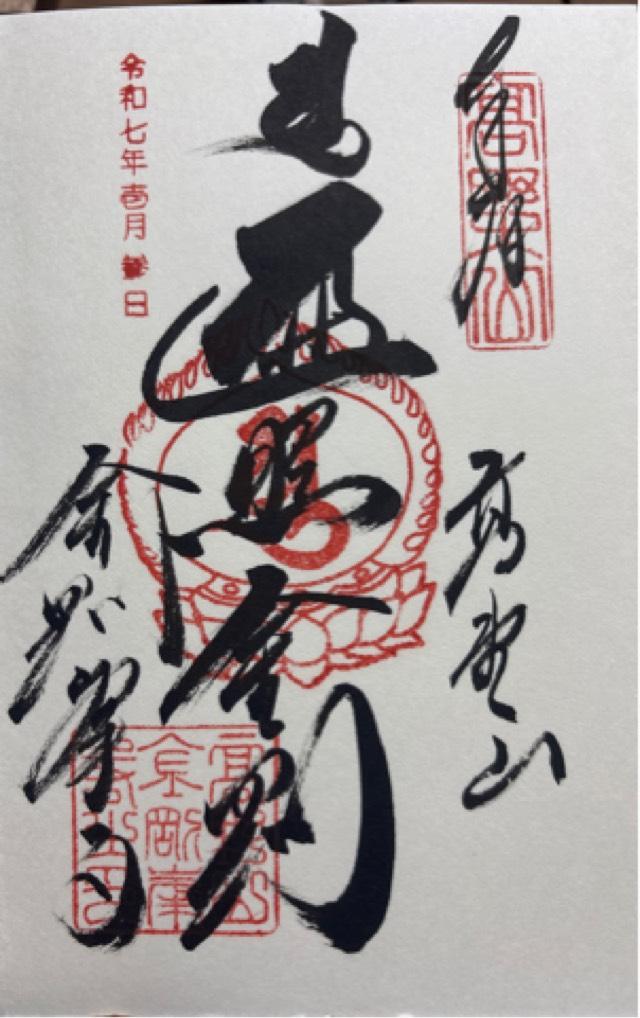 奉拝
高野山
高野山
遍照金剛
令和七年壱月日
金剛峯寺
高野山
金剛峯